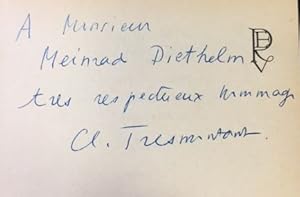 A Monsieur
Meinrad Diethelm
très respectueux hommage
Cl. Tresmontant.